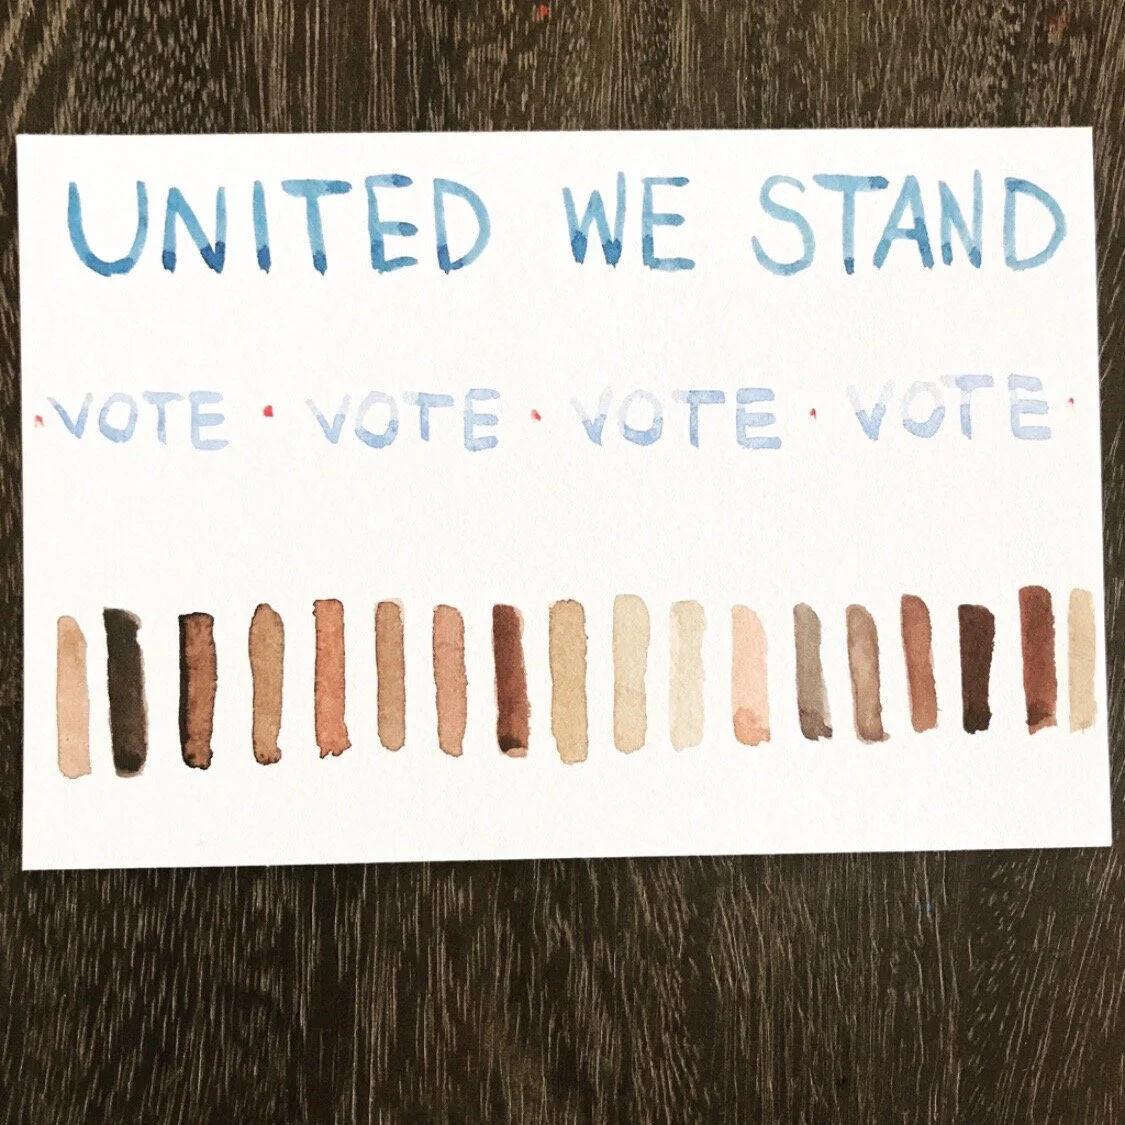 UNITED WE STAND
· VOTE · VOTE · VOTE · VOTE ·